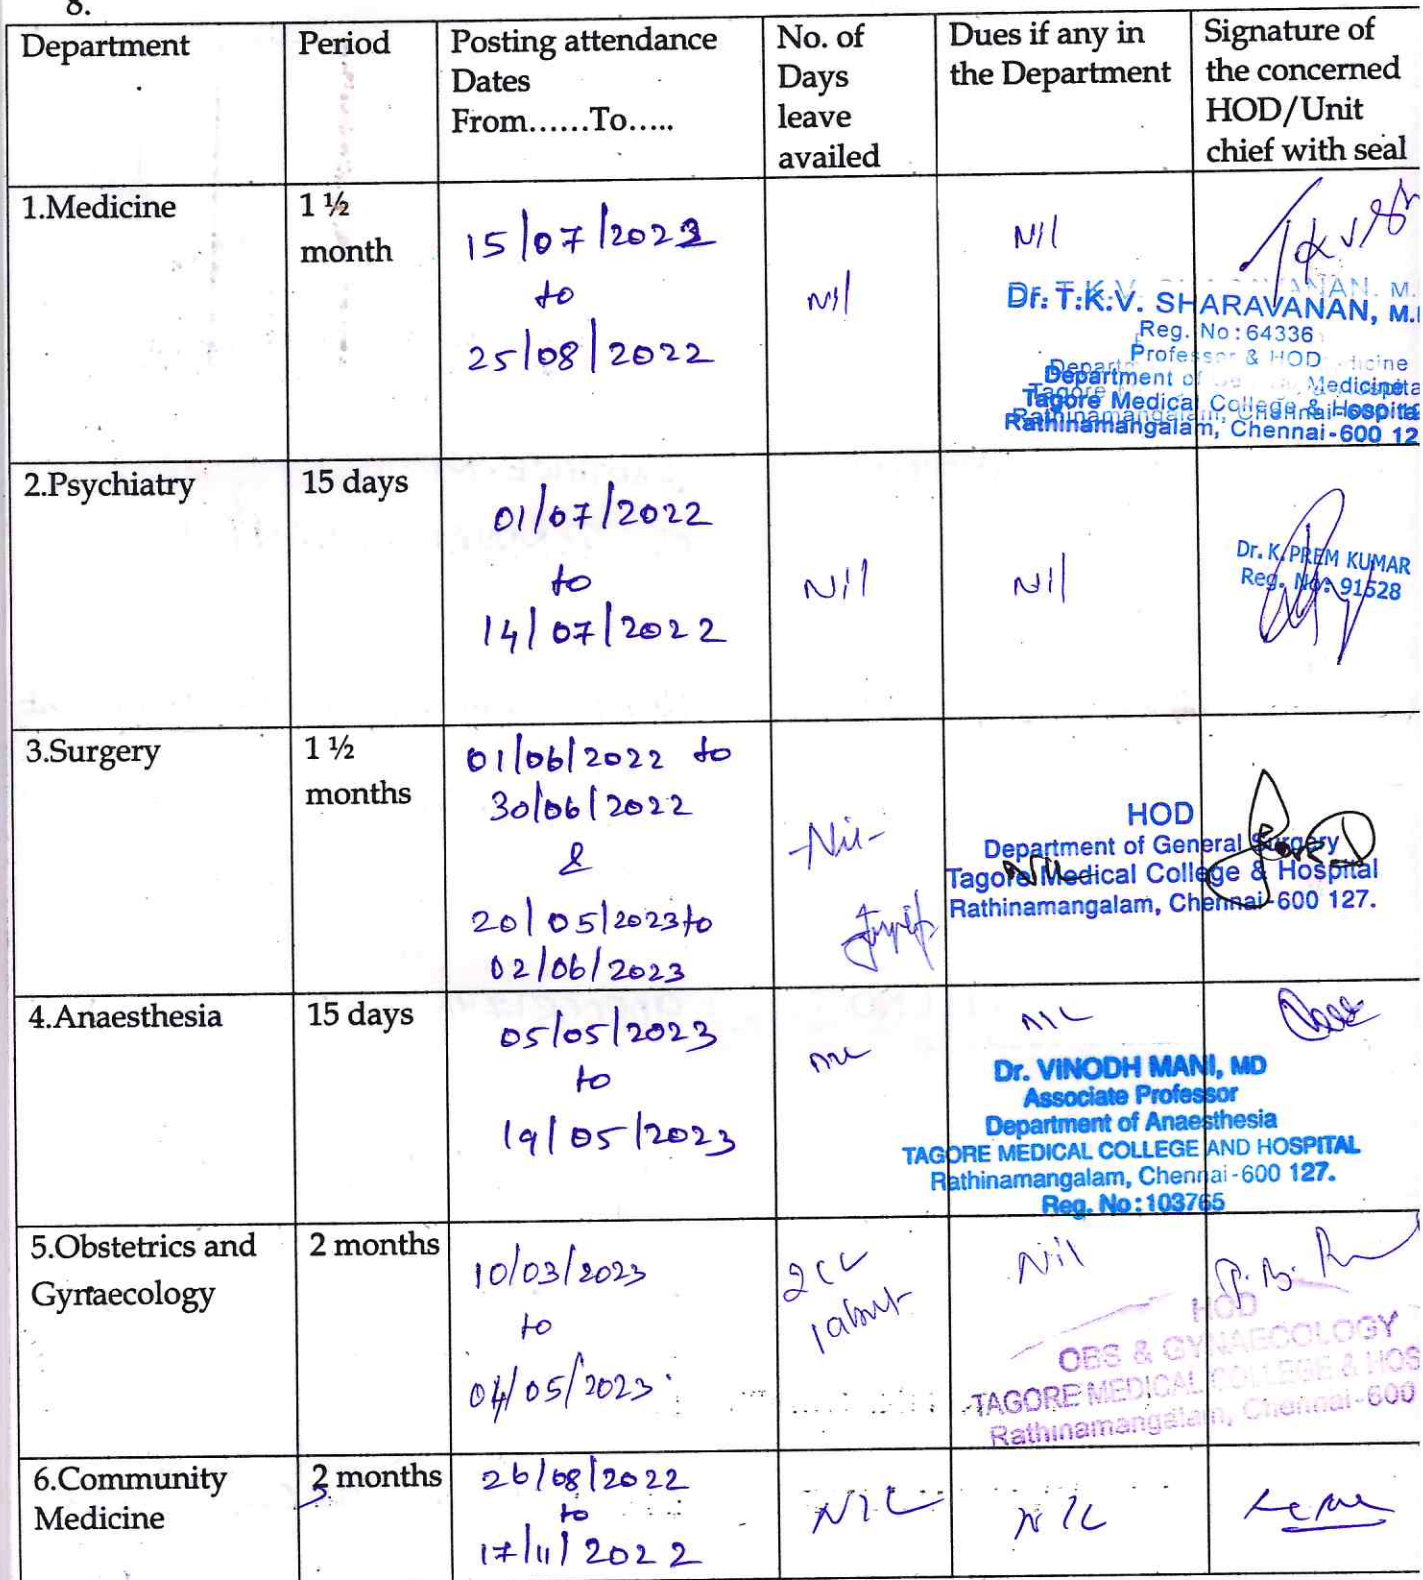 8.
Department
Period
Posting attendance
Dates
From......To.....
No. of
Days
leave
availed
Dues if any in
the Department
Signature of
the concerned
HOD/Unit
chief with seal
1.Medicine
1 ½
month
15/07/2022
to
25/08/2022
Nil
Nil
Dr. T.K.V. SHARAVANAN, M.
Reg. No : 64336
Professor & HOD
Department of Medicine
Tagore Medical College & Hospita
Rathinamangalam, Chennai-600 12
2.Psychiatry
15 days
01/07/2022
to
14/07/2022
Nil
Nil
Dr. K. PREM KUMAR
Reg. No: 91528
3.Surgery
1 ½
months
01/06/2022 to
30/06/2022
&
20/05/2023 to
02/06/2023
-Nil-
Nil
HOD
Department of General Surgery
Tagore Medical College & Hospital
Rathinamangalam, Chennai-600 127.
4.Anaesthesia
15 days
05/05/2023
to
19/05/2023
NIL
NIL
Dr. VINODH MANI, MD
Associate Professor
Department of Anaesthesia
TAGORE MEDICAL COLLEGE AND HOSPITAL
Rathinamangalam, Chennai-600 127.
Reg. No:103765
5.Obstetrics and
Gynaecology
2 months
10/03/2023
to
04/05/2023
2 CL
1 absent
Nil
HOD
OBS & GYNAECOLOGY
TAGORE MEDICAL COLLEGE & HOS
Rathinamangalam, Chennai-600
6.Community
Medicine
2 months
3
26/08/2022
to
17/11/2022
NIL
NIL